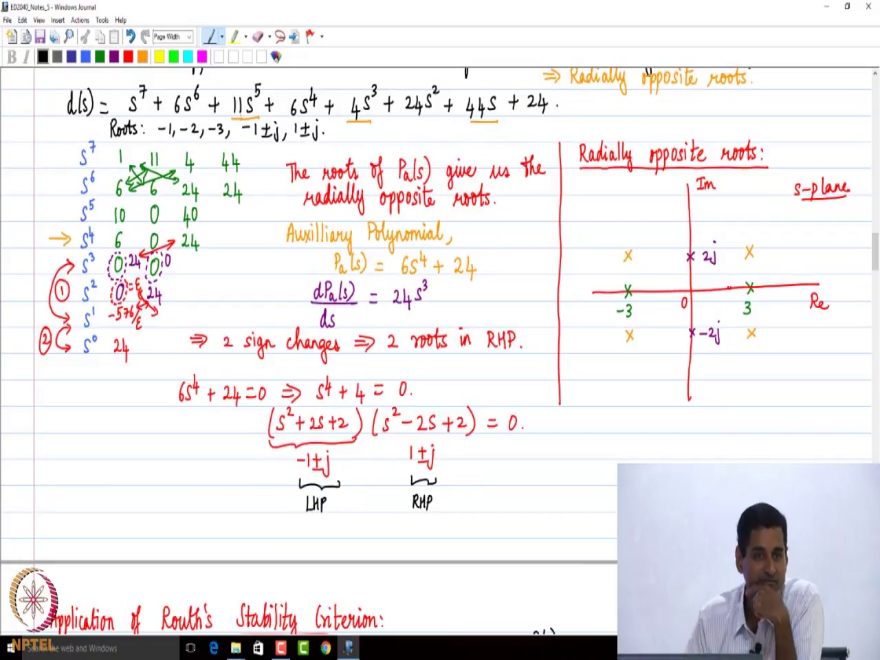 ED2040_Notes_5 - Windows Journal
File Edit View Insert Actions Tools Help
Page Width
B I
⇒ Radially opposite roots.
d(s) = s⁷ + 6s⁶ + 11s⁵ + 6s⁴ + 4s³ + 24s² + 44s + 24.
Roots: -1, -2, -3, -1±j, 1±j.
s⁷ 1 11 4 44
s⁶ 6 6 24 24
s⁵ 10 0 40
→ s⁴ 6 0 24
s³ 0 24 0 0
① s² 0 = ε 24
s¹ -576/ε
② s⁰ 24
The roots of Pa(s) give us the
radially opposite roots.
Auxilliary Polynomial,
Pa(s) = 6s⁴ + 24
dPa(s)/ds = 24s³
⇒ 2 sign changes ⇒ 2 roots in RHP.
6s⁴ + 24 = 0 ⇒ s⁴ + 4 = 0.
(s² + 2s + 2) (s² - 2s + 2) = 0.
-1±j 1±j
LHP RHP
Radially opposite roots:
Im
s-plane
× × 2j ×
-3 0 3 Re
× × -2j ×
Application of Routh's Stability Criterion:
NPTEL
the web and Windows